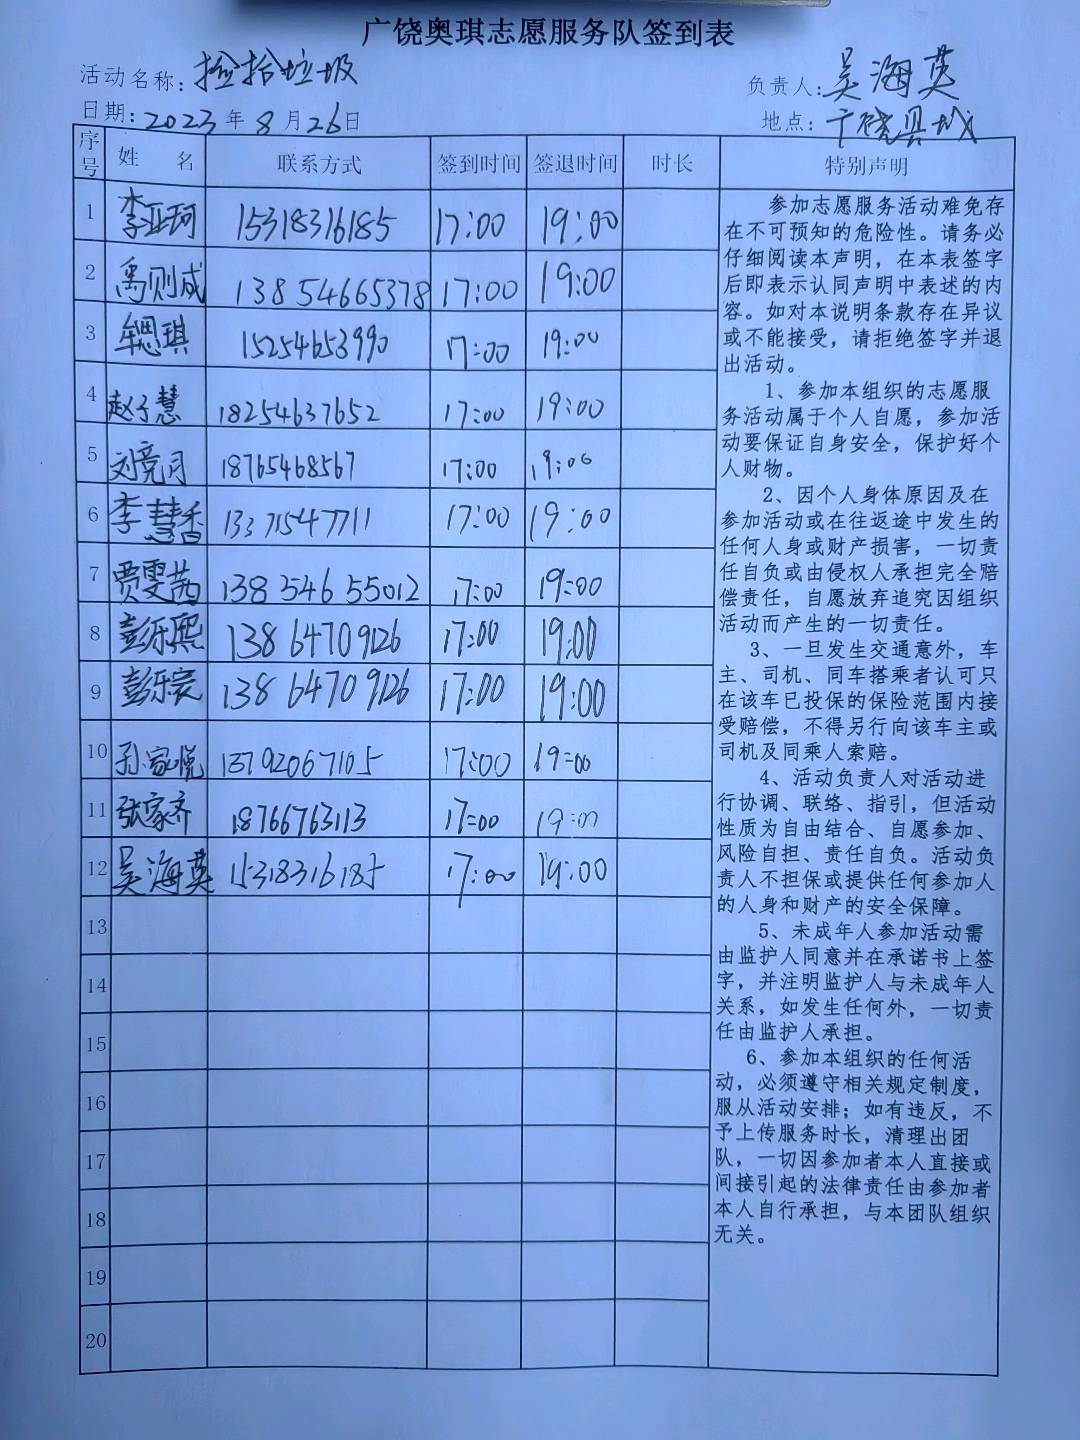 广饶奥琪志愿服务队签到表
活动名称：捡拾垃圾 负责人：吴海英
日期：2023年8月26日 地点：广饶县城
序号 姓 名 联系方式 签到时间 签退时间 时长 特别声明
1 李亚珂 15318316185 17:00 19:00
2 禹则成 13854665378 17:00 19:00
3 牟思琪 15254653990 17:00 19:00
4 赵子慧 18254637652 17:00 19:00
5 刘竞月 18765468567 17:00 19:00
6 李慧香 13371547711 17:00 19:00
7 贾雯茜 13854655012 17:00 19:00
8 彭乐熙 13864709126 17:00 19:00
9 彭乐宸 13864709126 17:00 19:00
10 孙家悦 13792067105 17:00 19:00
11 张家齐 18766763113 17:00 19:00
12 吴海英 15318316185 17:00 19:00
13
14
15
16
17
18
19
20
参加志愿服务活动难免存
在不可预知的危险性。请务必
仔细阅读本声明，在本表签字
后即表示认同声明中表述的内
容。如对本说明条款存在异议
或不能接受，请拒绝签字并退
出活动。
1、参加本组织的志愿服
务活动属于个人自愿，参加活
动要保证自身安全，保护好个
人财物。
2、因个人身体原因及在
参加活动或在往返途中发生的
任何人身或财产损害，一切责
任自负或由侵权人承担完全赔
偿责任，自愿放弃追究因组织
活动而产生的一切责任。
3、一旦发生交通意外，车
主、司机、同车搭乘者认可只
在该车已投保的保险范围内接
受赔偿，不得另行向该车主或
司机及同乘人索赔。
4、活动负责人对活动进
行协调、联络、指引，但活动
性质为自由结合、自愿参加、
风险自担、责任自负。活动负
责人不担保或提供任何参加人
的人身和财产的安全保障。
5、未成年人参加活动需
由监护人同意并在承诺书上签
字，并注明监护人与未成年人
关系，如发生任何外，一切责
任由监护人承担。
6、参加本组织的任何活
动，必须遵守相关规定制度，
服从活动安排；如有违反，不
予上传服务时长，清理出团
队，一切因参加者本人直接或
间接引起的法律责任由参加者
本人自行承担，与本团队组织
无关。